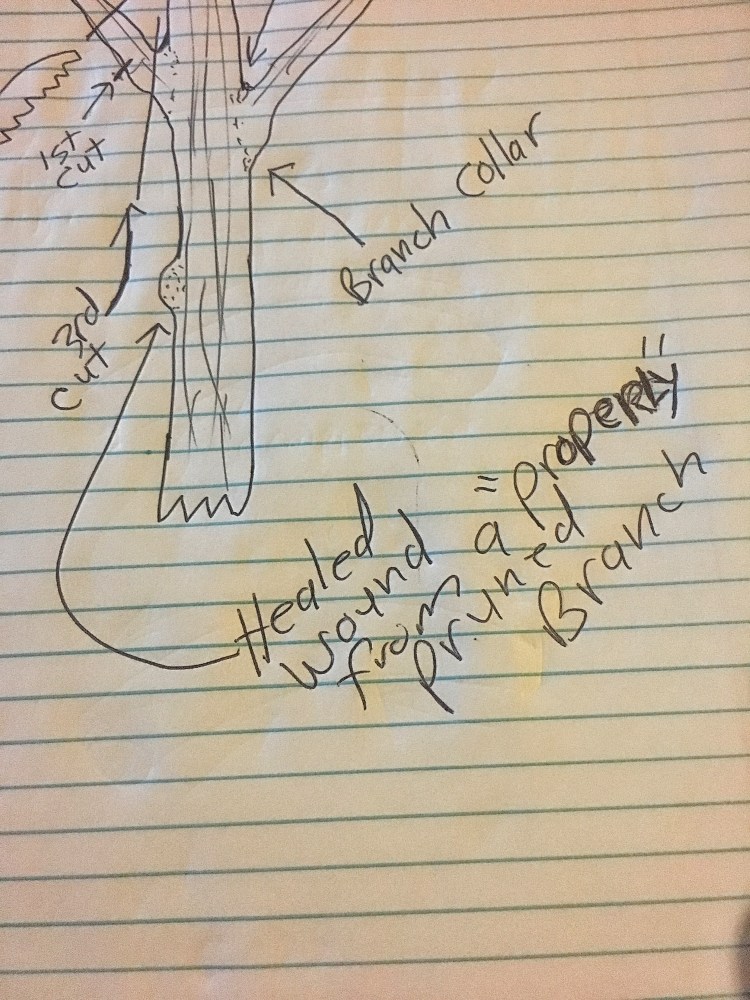 1st
cut
Branch Collar
3rd
cut
Healed = "properly"
wound a
from pruned
Branch